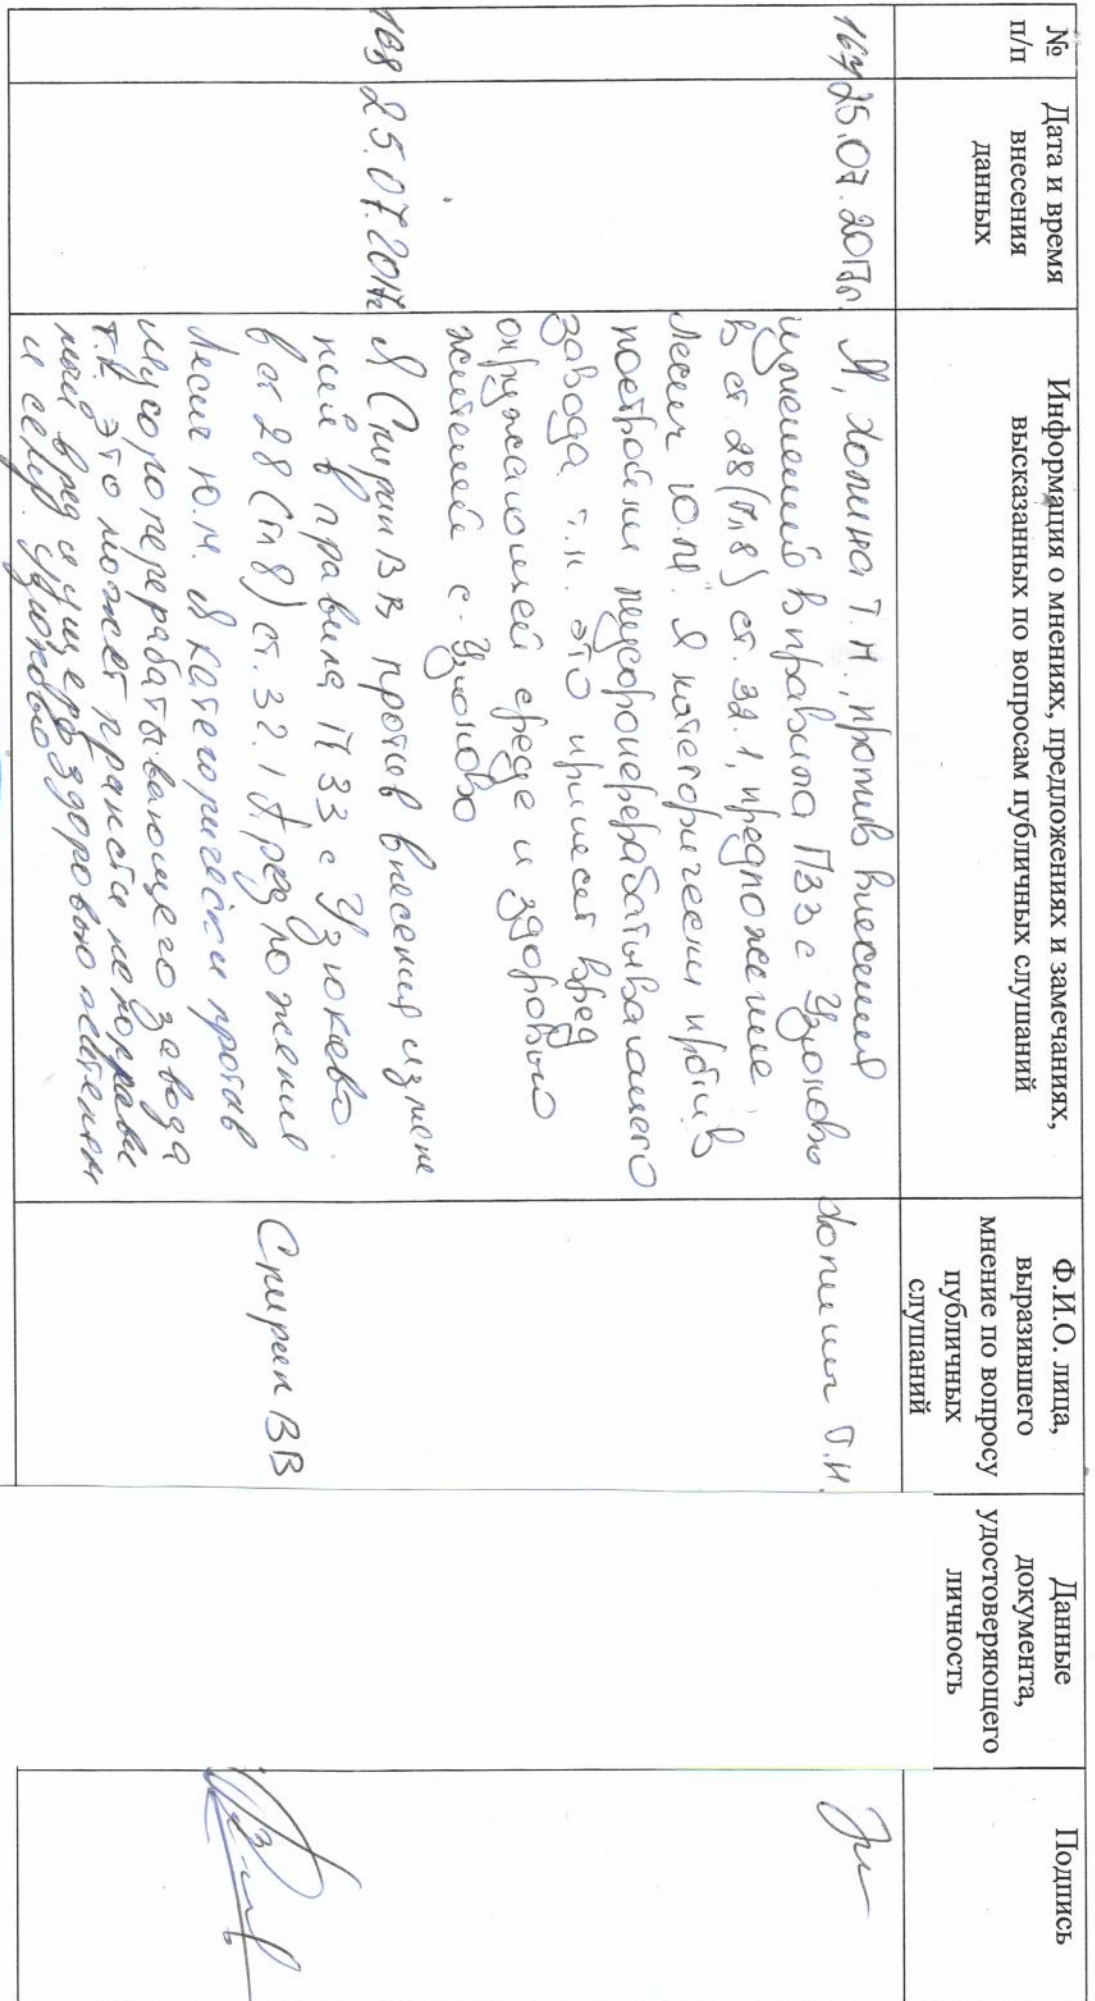 №
п/п
Дата и время
внесения
данных
Информация о мнениях, предложениях и замечаниях,
высказанных по вопросам публичных слушаний
Ф.И.О. лица,
выразившего
мнение по вопросу
публичных
слушаний
Данные
документа,
удостоверяющего
личность
Подпись
167
25.07.2017г.
Я, Холина Т.Н., против внесения
изменений в правила ПЗЗ с Узюково
в ст. 28 (п.8) ст. 32.1, предложение
Лесин Ю.М. Я категорически против
постройки мусороперерабатывающего
завода т.к. это принесет вред
окружающей среде и здоровью
жителей с. Узюково
Холина Т.Н.
168
25.07.2017г
Я Спирин ВВ против внесения измене
ний в правила ПЗЗ с Узюково
в ст 28 (п 8) ст. 32.1 предложение
Лесин Ю.М. Я категорически против
мусороперерабатывающего завода
т.к. это может принести непоправи
мый вред и ущерб здоровью жителям
и селу Узюково
Спирин ВВ